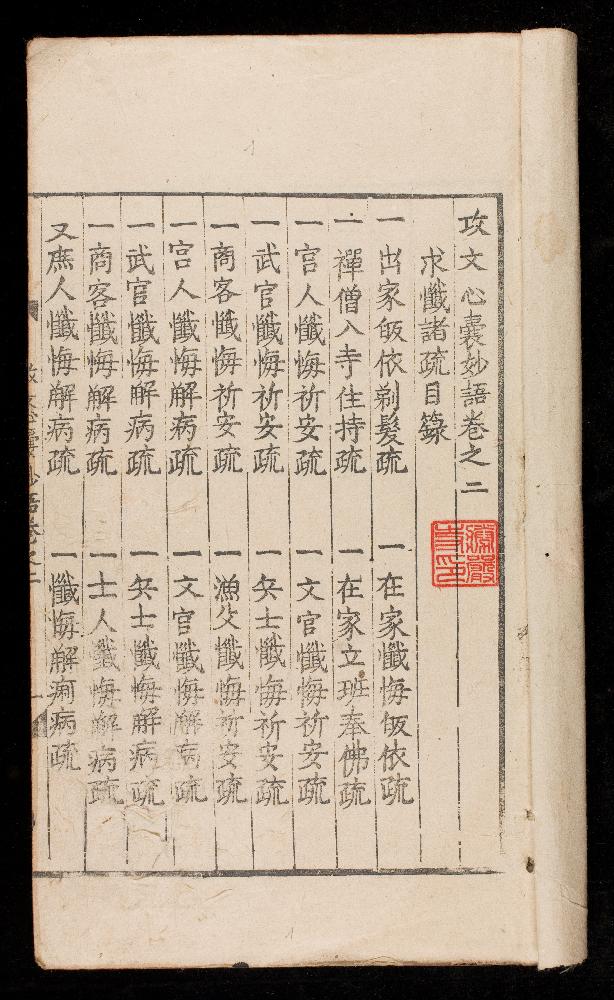 攻文心囊妙語卷之二
求懺諸疏目錄
一出家皈依剃髮疏 一在家懺悔皈依疏
一禪僧入寺住持疏 一在家立班奉佛疏
一宫人懺悔祈安疏 一文官懺悔祈安疏
一武官懺悔祈安疏 一兵士懺悔祈安疏
一商客懺悔祈安疏 一漁父懺悔祈安疏
一宫人懺悔解病疏 一文官懺悔解病疏
一武官懺悔解病疏 一兵士懺悔解病疏
一商客懺悔解病疏 一士人懺悔解病疏
又庶人懺悔解病疏 一懺悔解痢病疏
攻文心囊妙語卷之二